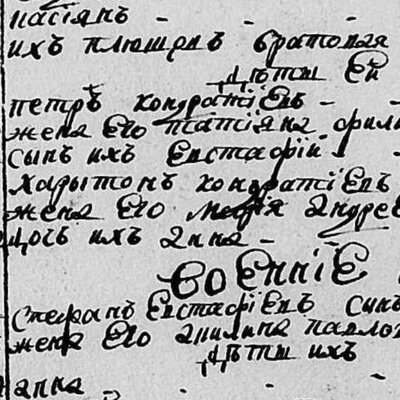 пасіянъ - - -
ихъ племянъ братовая
дѣтии Ей
петръ кондратіевъ -
жена Его татіяна фили
сынъ ихъ Евстафій -
Харытонъ кондратіевъ
жена Его Марія андрее
дочь ихъ анна -
воЕнніЕ
Стефанъ Евстафіевъ сынъ
жена Его акилина павлов
дѣтии ихъ
анна -